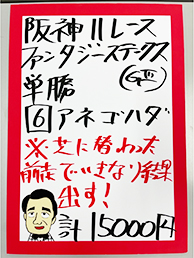 阪神11レース
ファンタジーステークス
(GⅢ)
単勝
6 アネゴハダ
※芝に替わった
前走でいきなり結果
出す!
計 15000円